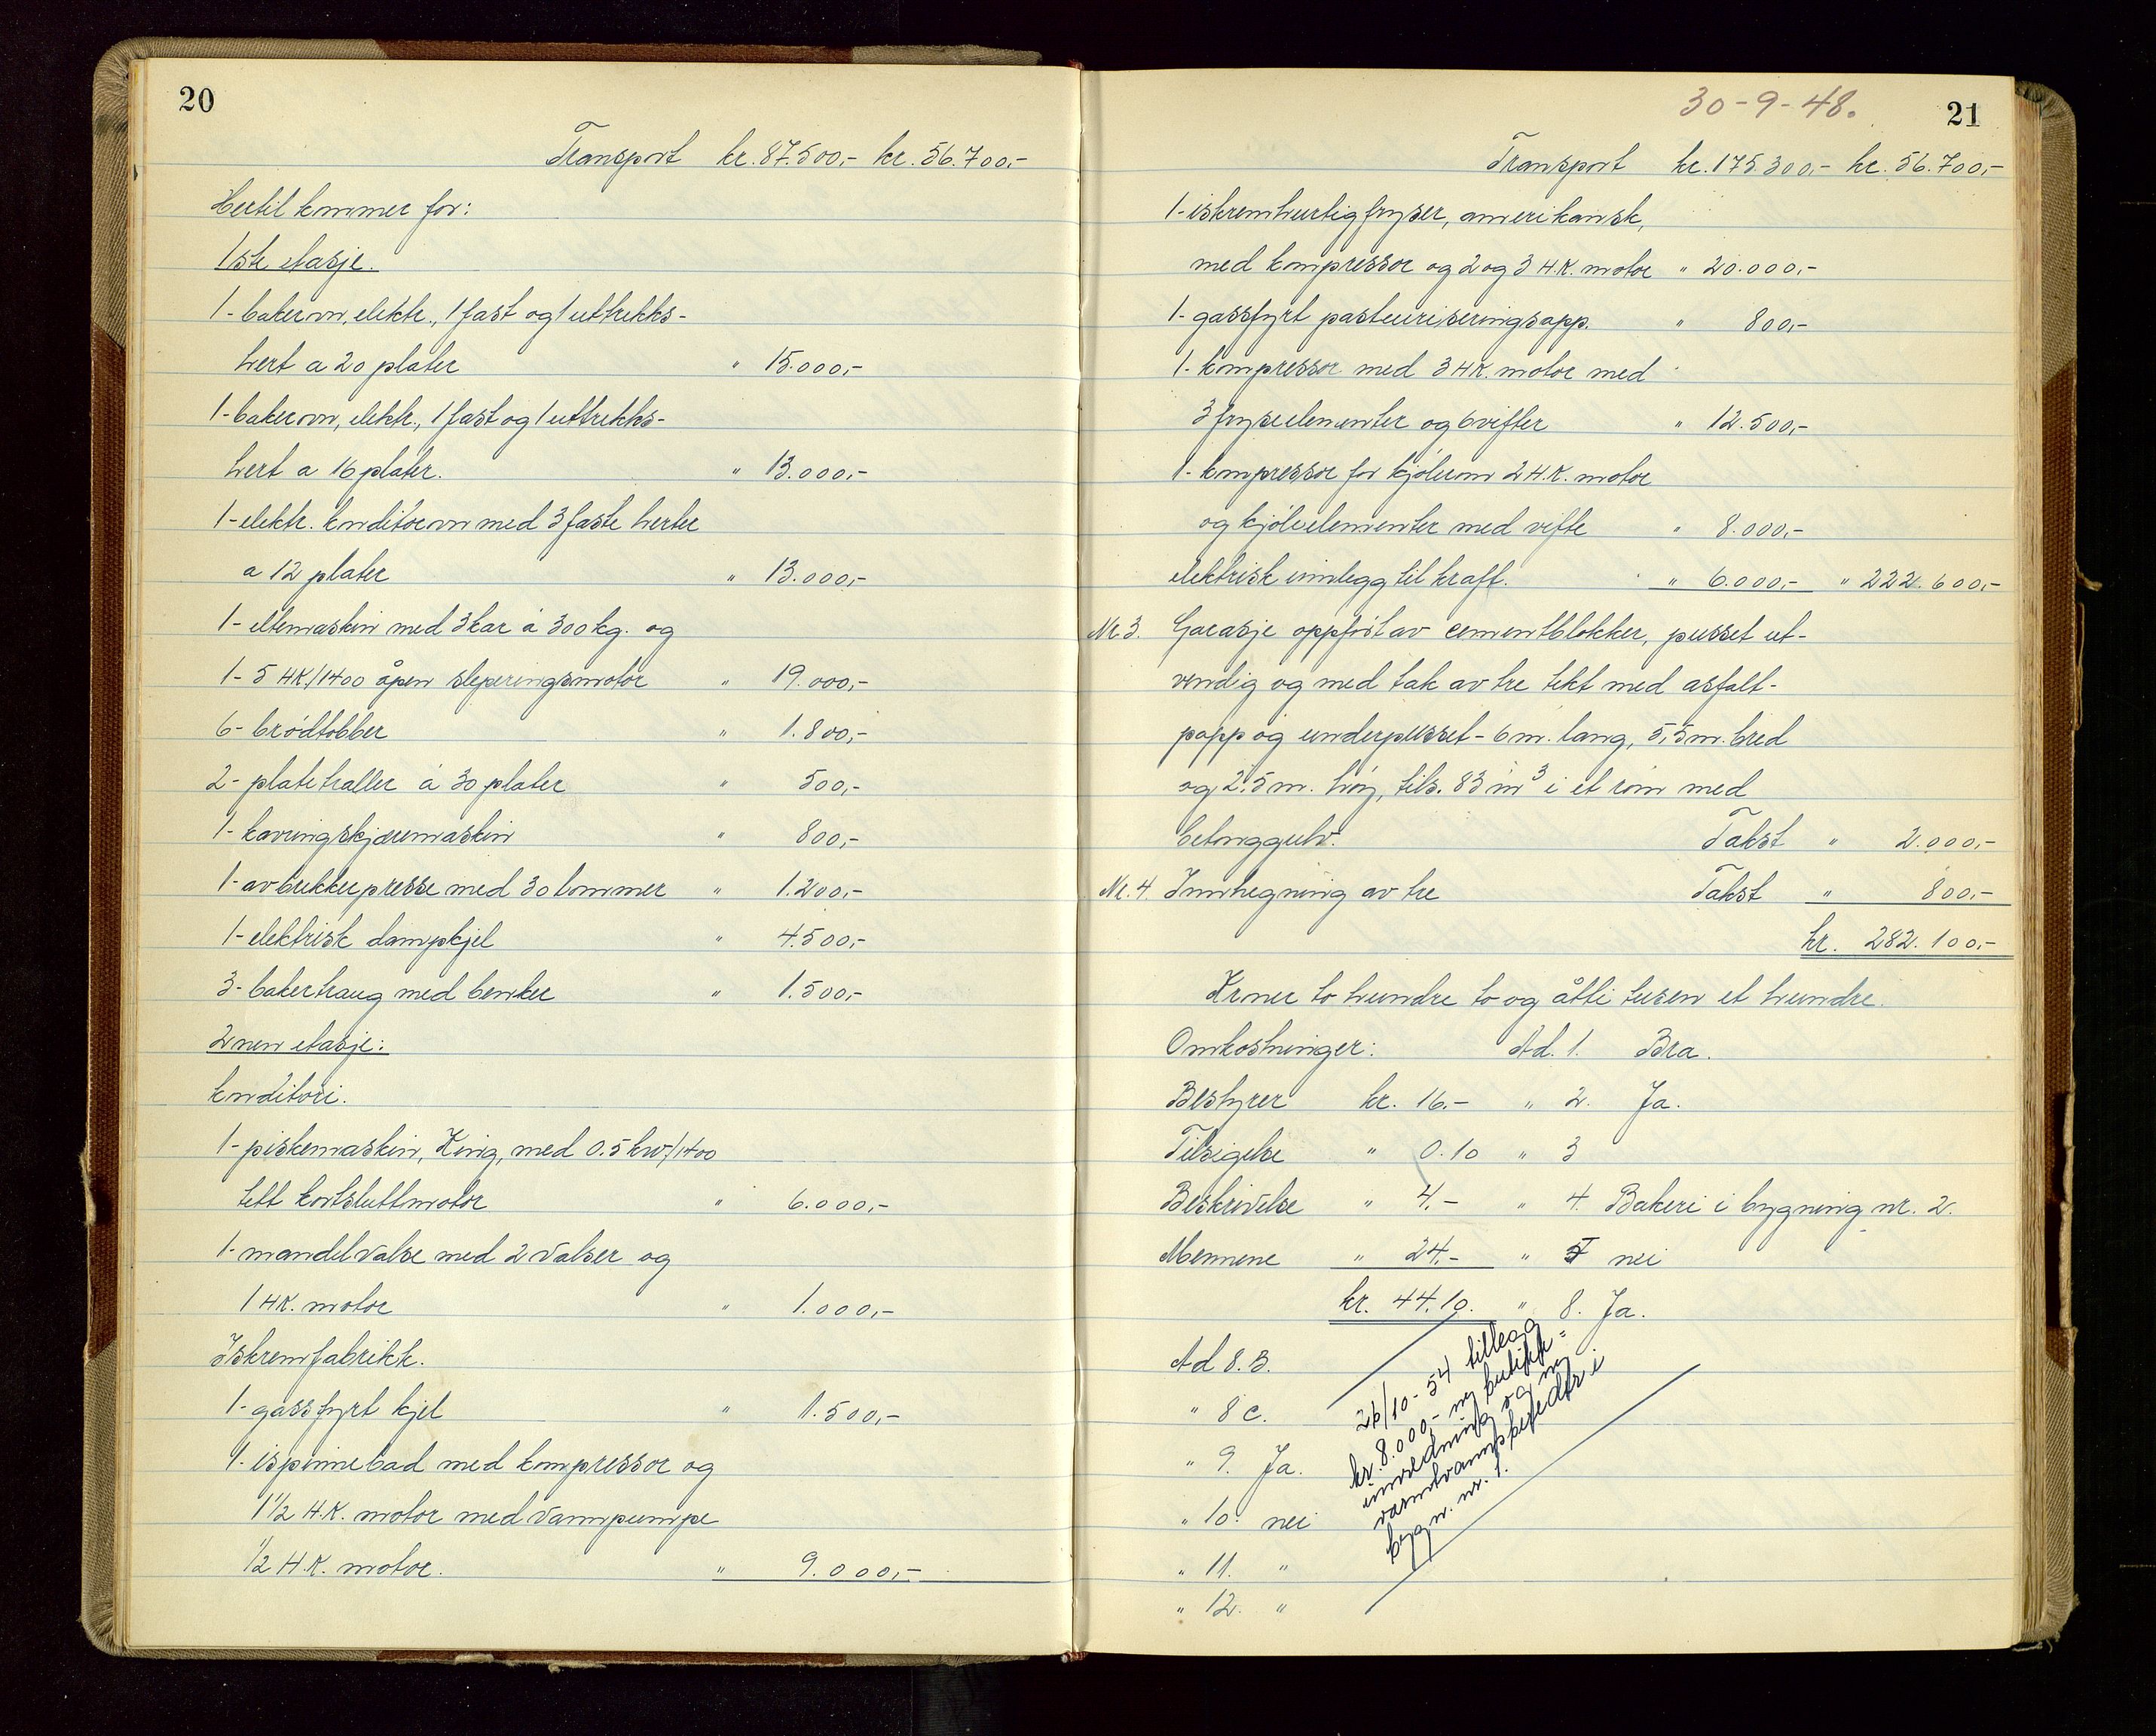 20
Transport kr. 87.500,- kr. 56.700,-
Hertil kommer for:
1ste etasje.
1- bakerovn, elektr., 1 fast og 1 uttrekks-
hert a 20 plater " 15.000,-
1- bakerovn, elektr., 1 fast og 1 uttrekks-
hert a 16 plater. " 13.000,-
1- elektr. konditorovn med 3 faste herter
a 12 plater " 13.000,-
1- eltemaskin med 3 kar á 300 kg. og
1- 5 HK/1400 åpen sleperingsmotor " 19.000,-
6- brødtobber " 1.800,-
2- platetraller á 30 plater " 500,-
1- kavringskjæremaskin " 800,-
1- avbrekkerpresse med 30 lommer " 1.200,-
1- elektrisk dampkjel " 4.500,-
3- bakertraug med benker " 1.500,-
2nen etasje:
konditori.
1- piskemaskin, King, med 0.5 kw/1400
tett kortsluttmotor " 6.000,-
1- mandelvalse med 2 valser og
1 HK. motor " 1.000,-
Iskremfabrikk.
1- gassfyrt kjel " 1.500,-
1- ispinnebad med kompressor og
1 1/2 H.K. motor med vannpumpe
1/2 H.K. motor. " 9.000,-
30-9-48.
21
Transport kr. 175.300,- kr. 56.700,-
1- iskremhurtigfryser, amerikansk,
med kompressor og 2 og 3 H.K. motor " 20.000,-
1- gassfyrt pasteuriseringsapp. " 800,-
1- kompressor med 3 HK. motor med
3 fryseelementer og 6 vifter " 12.500,-
1- kompressor for kjølerom 2 H.K. motor
og kjøleelementer med vifte " 8.000,-
elektrisk innlegg til kraft. " 6.000,- " 222.600,-
Nr 3. Garasje oppført av cementblokker, pusset ut-
vendig og med tak av tre tekt med asfalt-
papp og underpusset - 6 m. lang, 5,5 m. bred
og 2.5 m. høy, tils. 83 m³ i et rom med
betonggulv. Takst " 2.000,-
Nr. 4. Innhegning av tre Takst " 800,-
kr. 282.100,-
Kroner to hundre to og åtti tusen et hundre.
Omkostninger: Ad. 1. Bra.
Bestyrer kr. 16.- " 2. Ja.
Tilsigelse " 0.10 " 3
Beskrivelse " 4.- " 4. Bakeri i bygning nr. 2.
Mennene " 24.- " nei
kr. 44.10. " 8. Ja.
Ad 8. B.
" 8 c.
" 9. Ja.
" 10. nei
" 11. "
" 12. "
26/10-54 tillegg
kr. 8.000,- ny butikk-
innredning og ny
varmtvannsbereder i
bygn. nr. 1.